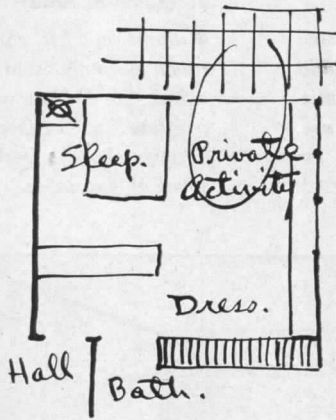 Sleep.
Private
Activity
Dress.
Hall
Bath.